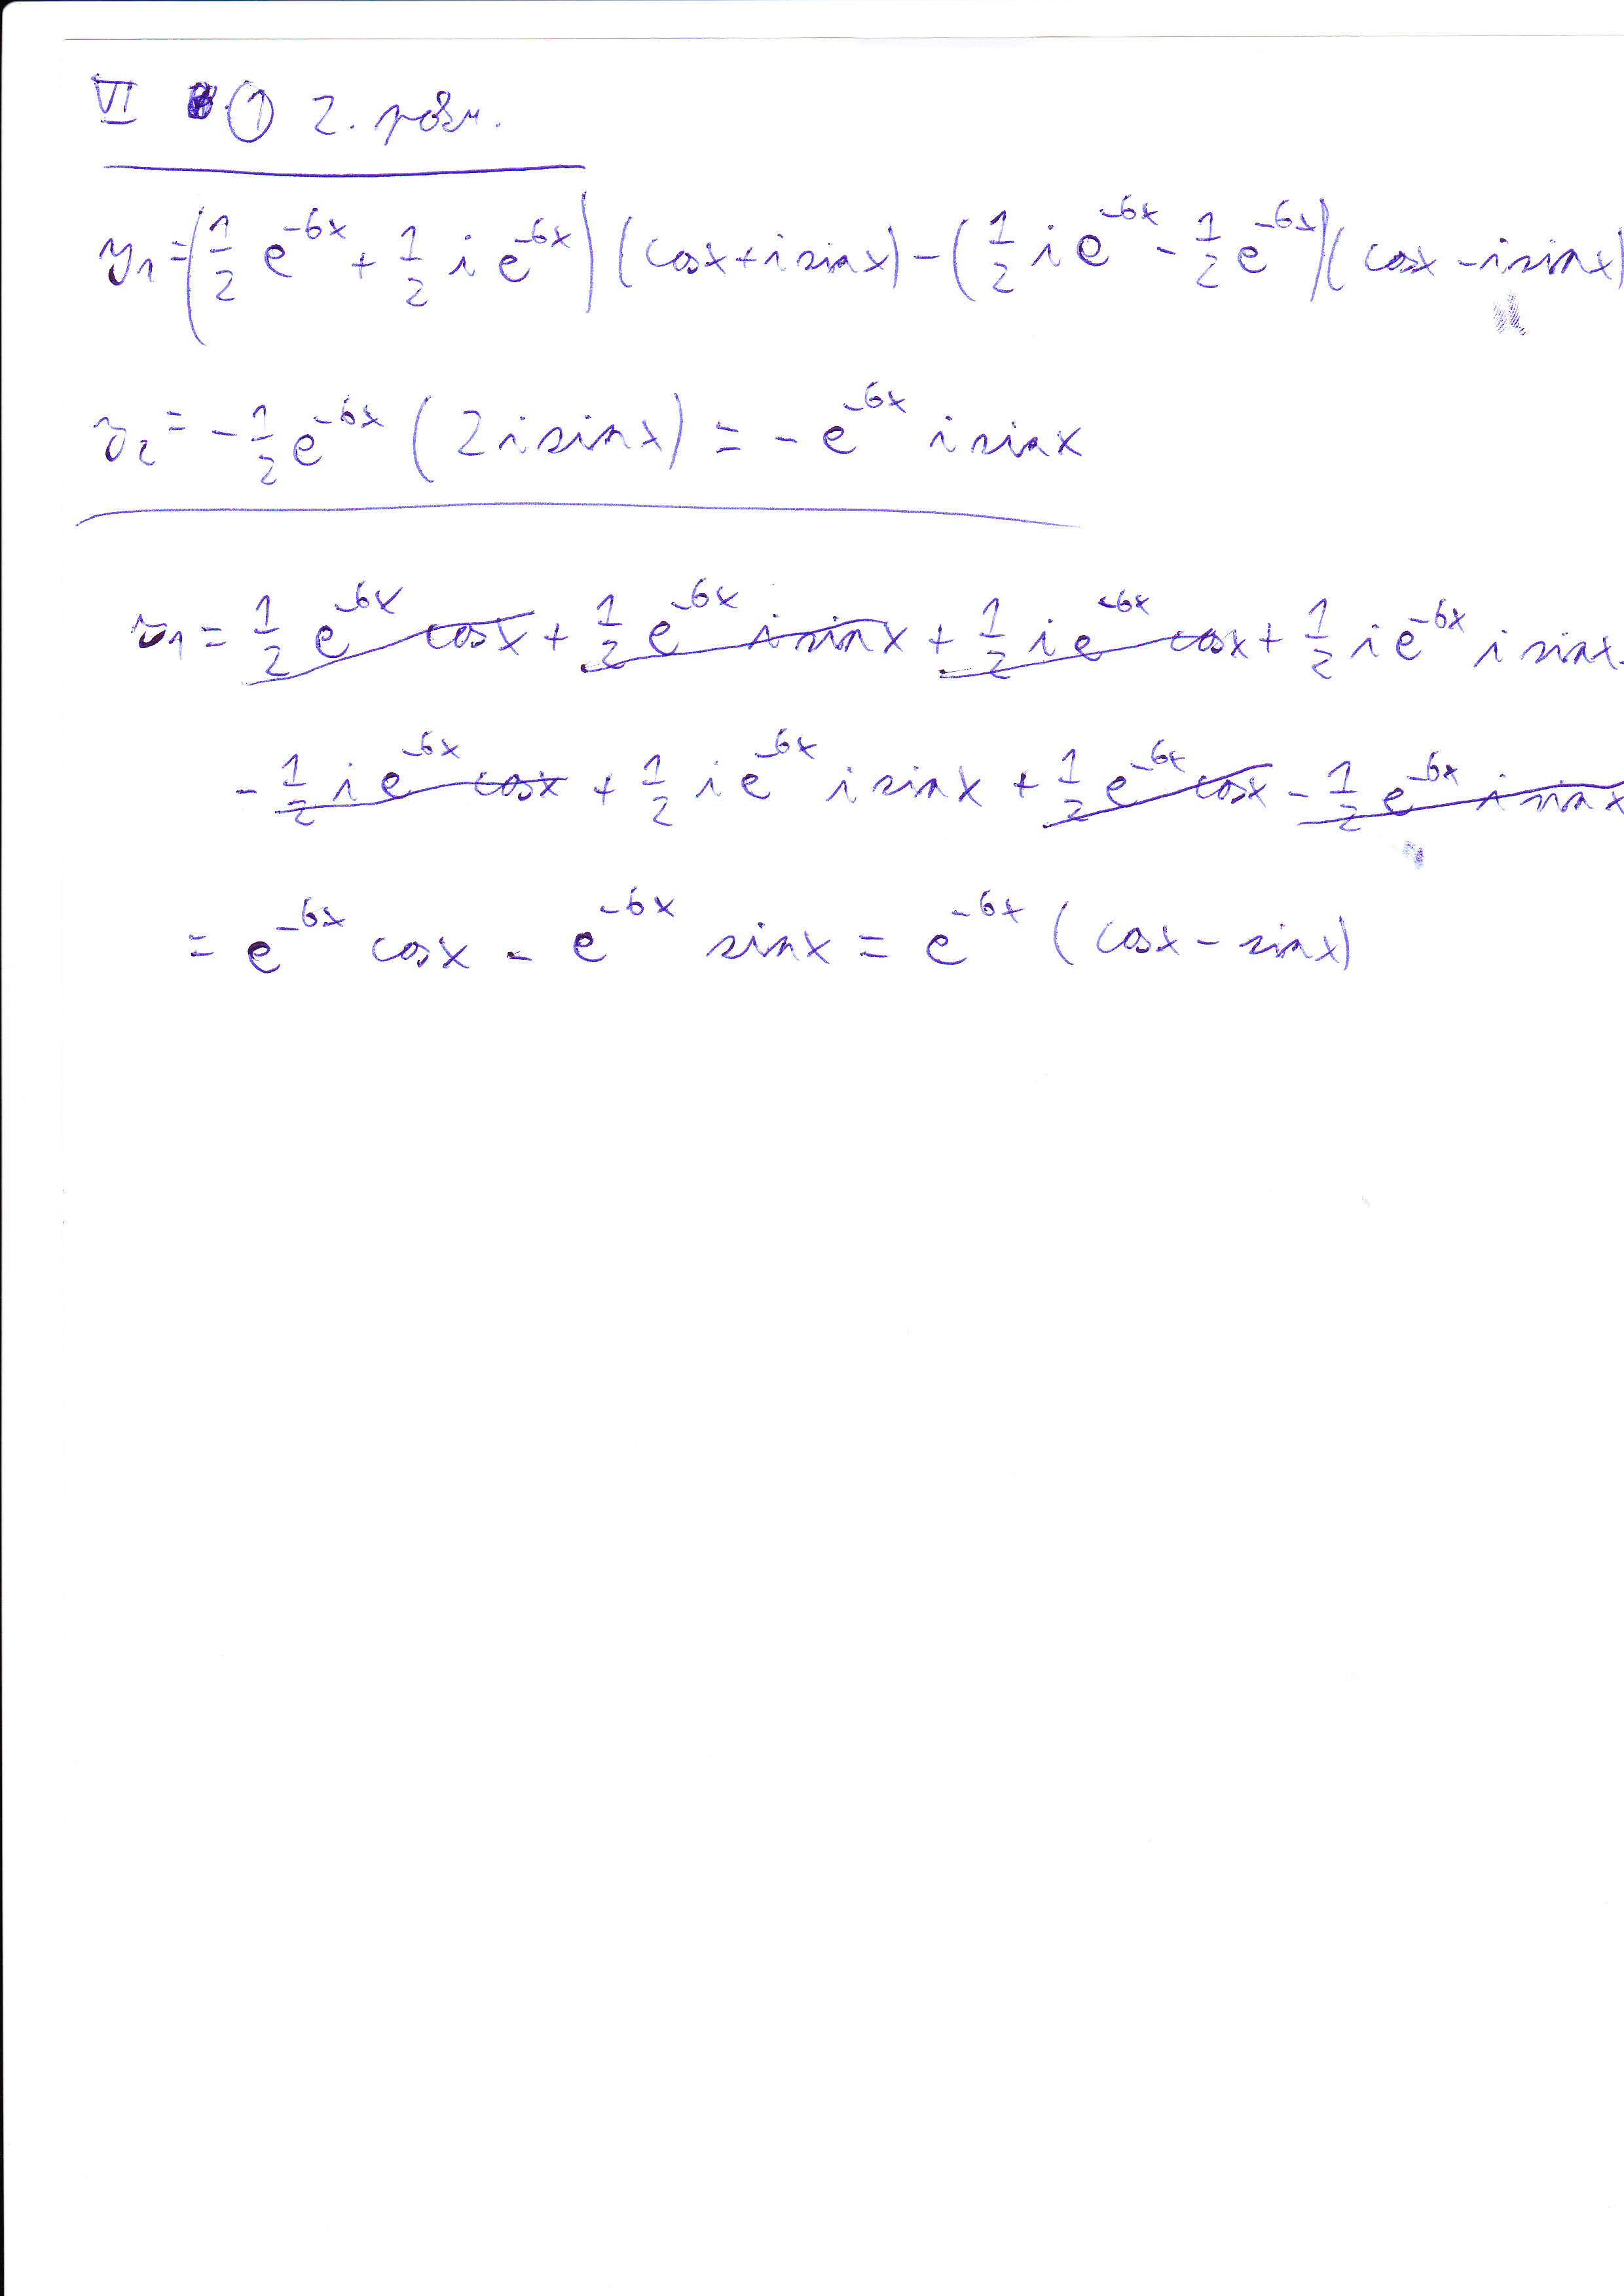 VI ① 2. pośm.
y₁ = (1/2 e^{-6x} + 1/2 i e^{-6x}) (cosx + i sinx) - (1/2 i e^{-6x} - 1/2 e^{-6x}) (cosx - i sinx)
y₂ = - 1/2 e^{-6x} (2 i sinx) = - e^{-6x} i sinx
y₁ = 1/2 e^{-6x} cosx + 1/2 e^{-6x} i sinx + 1/2 i e^{-6x} cosx + 1/2 i e^{-6x} i sinx -
- 1/2 i e^{-6x} cosx + 1/2 i e^{-6x} i sinx + 1/2 e^{-6x} cosx - 1/2 e^{-6x} i sinx
= e^{-6x} cosx - e^{-6x} sinx = e^{-6x} (cosx - sinx)